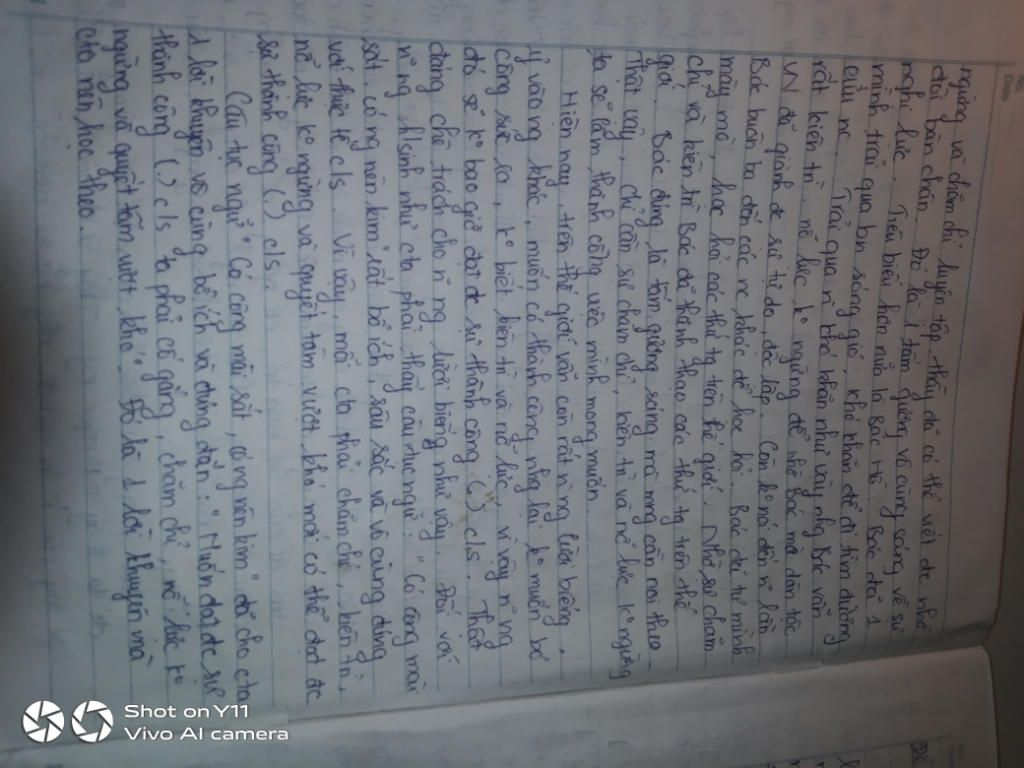 ngừng và chăm chỉ luyện tập thầy đã có thể viết đc nhờ
đôi bàn chân. Đó là 1 tấm gương vô cùng sáng về sự
nghị lực. Tiêu biểu hơn nữa là Bác Hồ. Bác đã 1
mình trải qua bn sóng gió, khó khăn để đi tìm đường
cứu nc. Trải qua n` khó khăn như vậy nhg Bác vẫn
rất kiên trì, nỗ lực k° ngừng để nhờ Bác mà dân tộc
VN đã giành đc sự tự do, độc lập. Còn k° nói đến n` lần
Bác buôn ba đến các nc khác để học hỏi. Bác đã tự mình
mày mò, học hỏi các thứ tg trên thế giới. Nhờ sự chăm
chỉ và kiên trì Bác đã thành thạo các thứ tg trên thế
giới. Bác đúng là tấm gương sáng mà mng cần noi theo.
Thật vậy, chỉ cần sự chăm chỉ, kiên trì và nỗ lực k° ngừng
ta sẽ làm thành công việc mình mong muốn.
Hiện nay, trên thế giới vẫn còn rất n` ng lười biếng,
ỷ vào ng khác, muốn có thành công nhg lại k° muốn bỏ
công sức ra, k° biết kiên trì và nỗ lực, vì vậy n` ng
đó sẽ k° bao giờ đạt đc sự thành công (.) c/s. Thật
đáng chê trách cho n` ng lười biếng như vậy. Đối với
n` ng h/sinh như cta phải thấy câu tục ngữ: "Có công mài
sắt có ng nên kim" rất bổ ích, sâu sắc và vô cùng đúng
với thực tế c/s. Vì vậy, mỗi cta phải chăm chỉ, kiên trì,
nỗ lực k° ngừng và quyết tâm vượt khó mới có thể đạt đc
sự thành công (.) c/s.
Câu tục ngữ "Có công mài sắt, có ng nên kim" đã cho cta
1 lời khuyên vô cùng bổ ích và đúng đắn: "Muốn đạt đc sự
thành công (.) c/s ta phải cố gắng, chăm chỉ, nỗ lực k°
ngừng và quyết tâm vượt khó". Đó là 1 lời khuyên mà
cta nên học theo.
Shot on Y11
Vivo AI camera